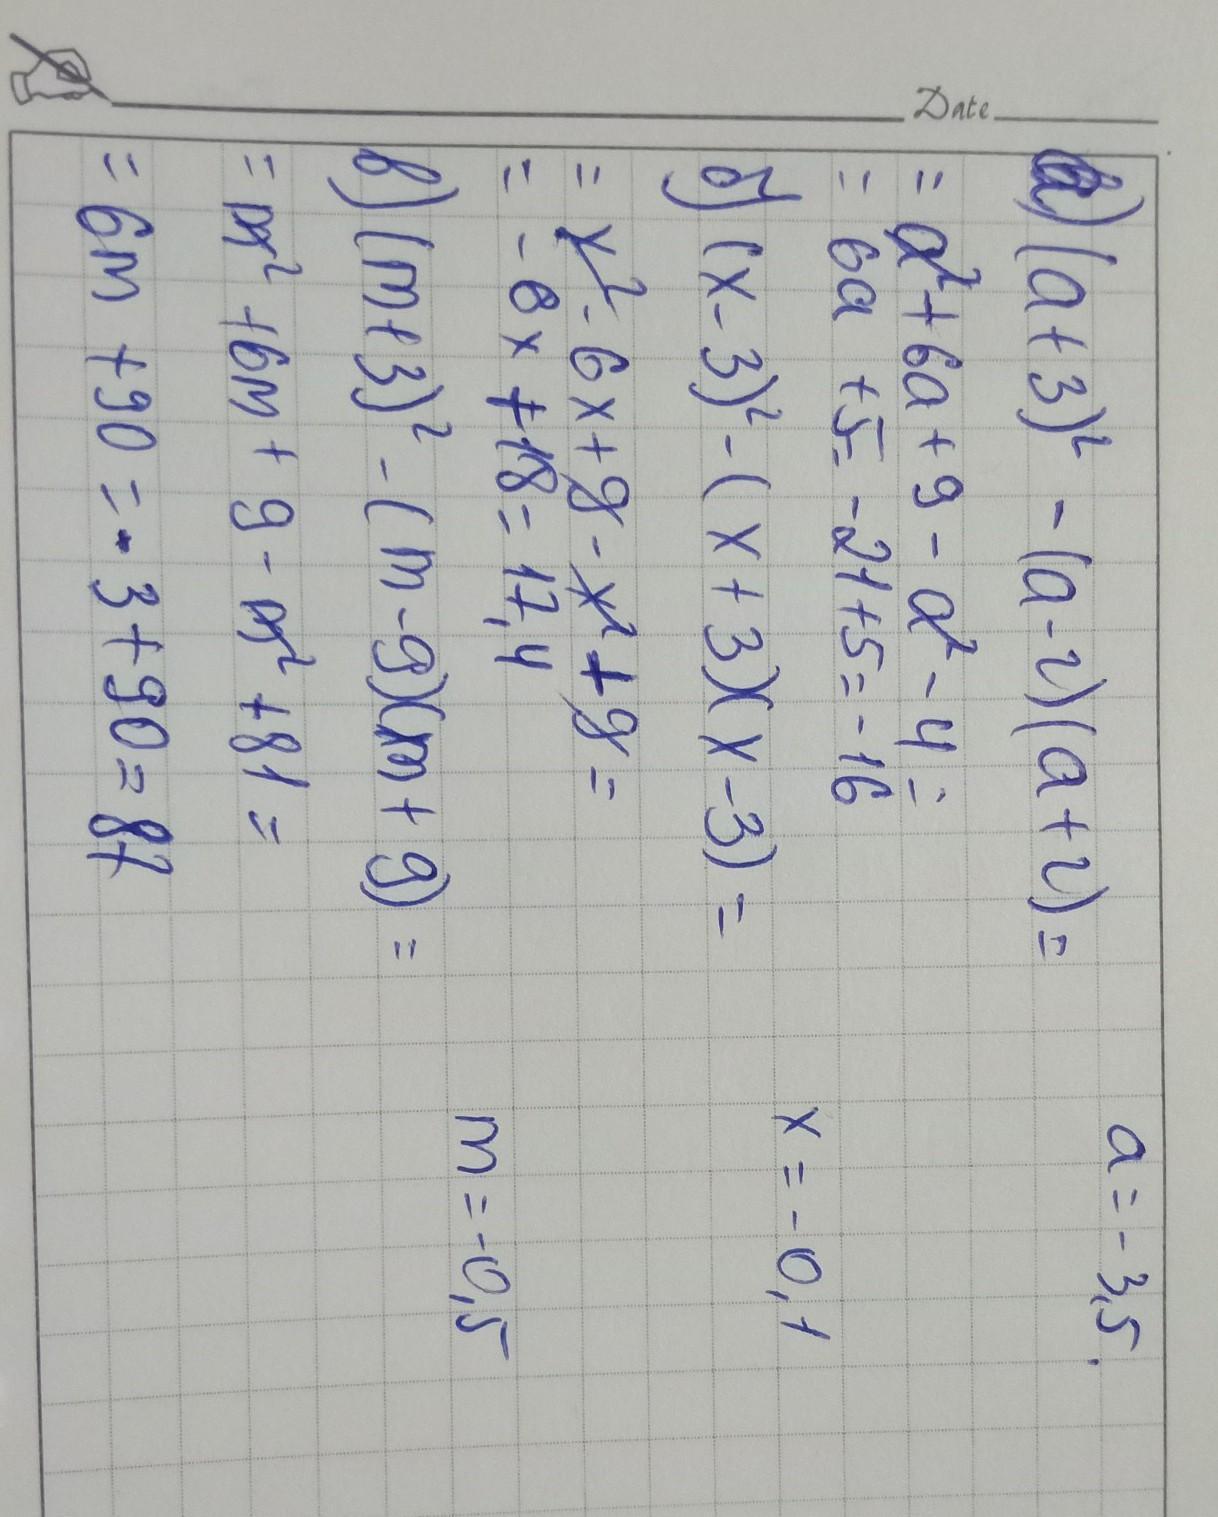 Date
а) (a+3)² - (a-2)(a+2) =
a = -3,5.
= a² + 6a + 9 - a² - 4 =
= 6a + 5 = -21 + 5 = -16
б) (x-3)² - (x+3)(x-3) =
x = -0,1
= x² - 6x + 9 - x² + 9 =
= -6x + 18 = 17,4
в) (m+3)² - (m-9)(m+9) =
m = -0,5
= m² + 6m + 9 - m² + 81 =
= 6m + 90 = -3 + 90 = 87